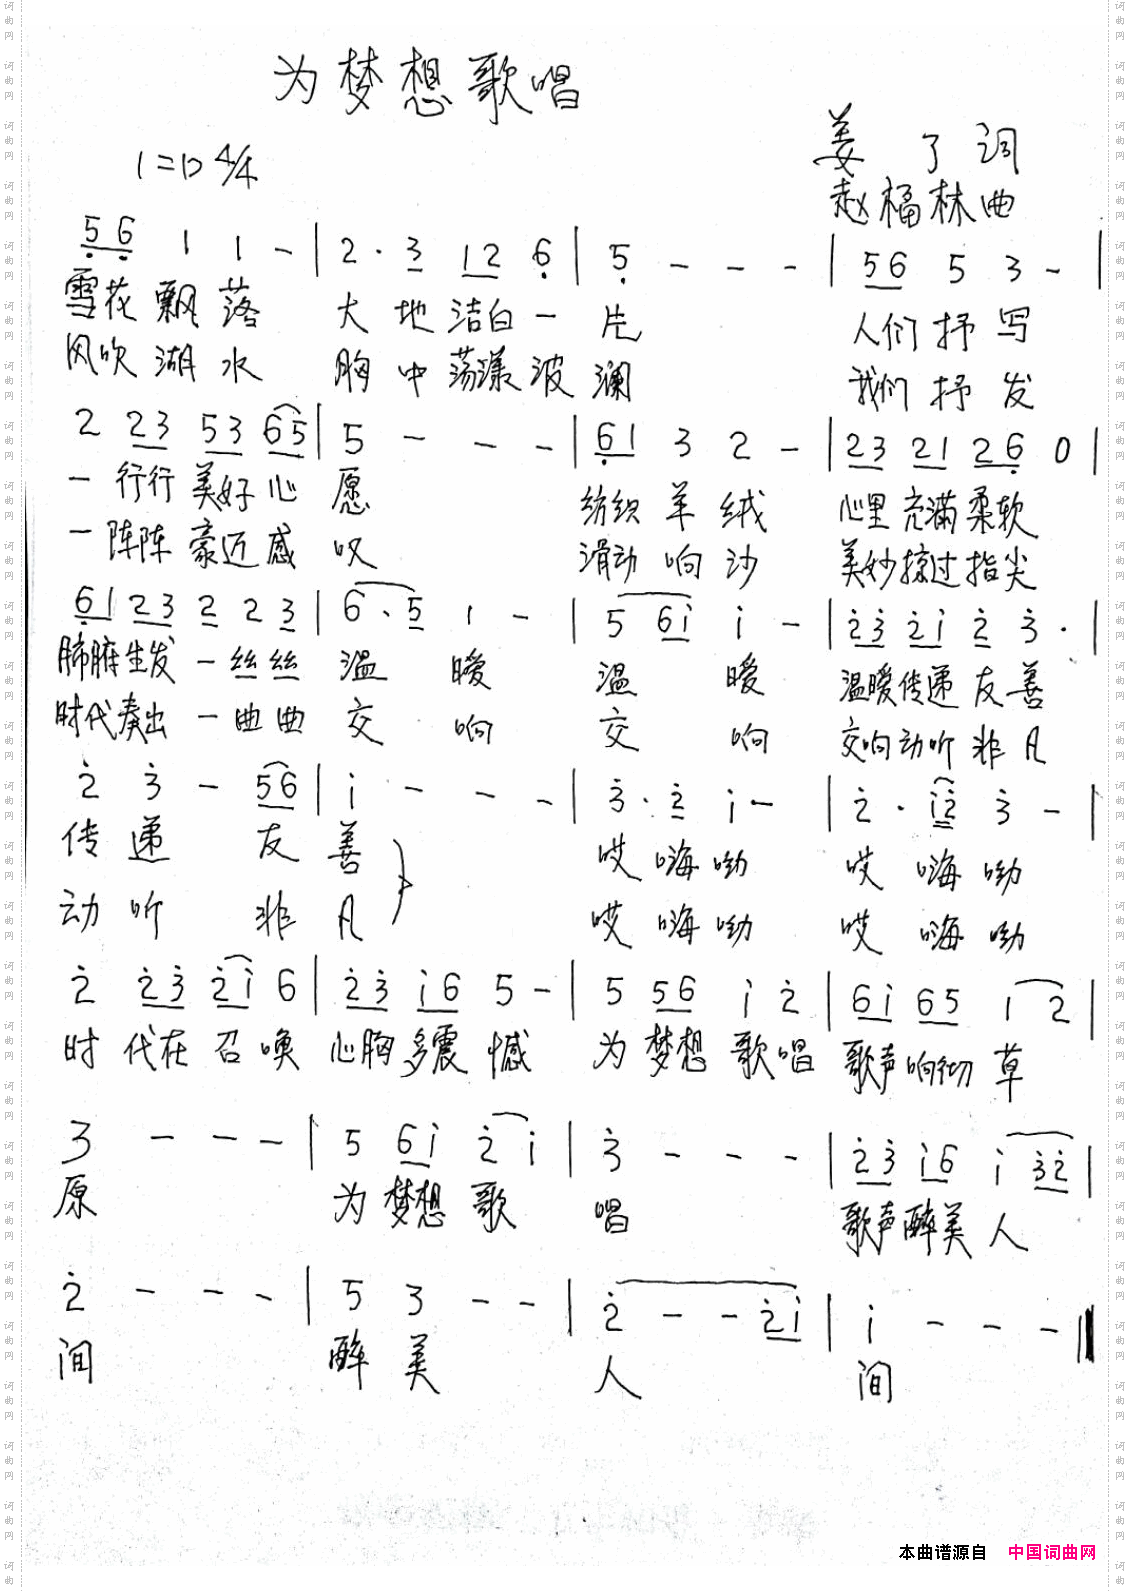 为梦想歌唱
1=D 4/4
姜 了 词
赵福林曲
5̣6̣ 1 1 - | 2 · 3 12 6̣ | 5̣ - - - | 56 5 3 - |
雪花飘落 大地洁白一片 人们抒写
风吹湖水 胸中荡漾波澜 我们抒发
2 23 53 65 | 5 - - - | 6̣1 3 2 - | 23 21 26̣ 0 |
一行行美好心愿 纺织羊绒 心里充满柔软
一阵阵豪迈感叹 滑动响沙 美妙掠过指尖
6̣1 23 2 2 3 | 6 · 5 1 - | 5 6i i - | 2̇3̇ 2̇i 2̇ 3̇ · |
肺腑生发一丝丝温暖 温暖 温暖传递友善
时代奏出一曲曲交响 交响 交响动听非凡
2̇ 3̇ - 56 | i - - - | 3̇ · 2̇ i - | 2̇ · i2̇ 3̇ - |
传递友善 哎嗨呦 哎嗨呦
动听非凡 哎嗨呦 哎嗨呦
2̇ 2̇3̇ 2̇i 6 | 2̇3̇ i6 5 - | 5 56 i 2̇ | 6i 65 i 2 |
时代在召唤 心胸多震憾 为梦想歌唱 歌声响彻草
3 - - - | 5 6i 2̇ i | 3̇ - - - | 2̇3̇ i6 i 3̇2̇ |
原 为梦想歌 唱 歌声醉美人
2̇ - - - | 5 3 - - | 2̇ - - 2̇i | i - - - ‖
间 醉美 人 间
本曲谱源自 中国词曲网